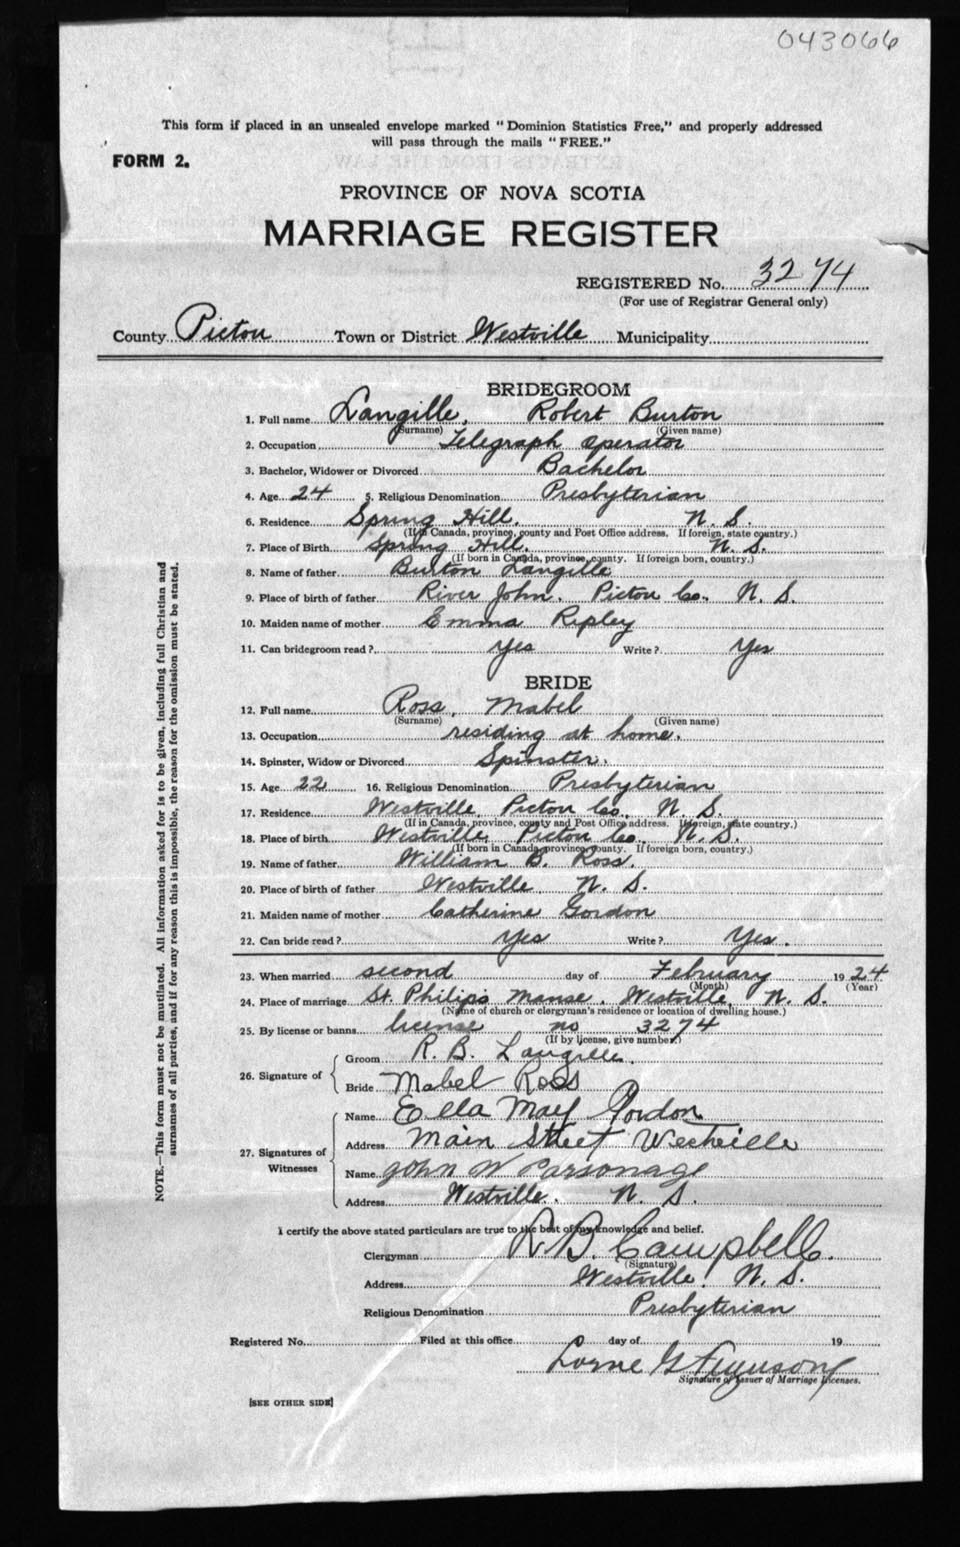 043066
This form if placed in an unsealed envelope marked "Dominion Statistics Free," and properly addressed
will pass through the mails "FREE."
FORM 2.
PROVINCE OF NOVA SCOTIA
MARRIAGE REGISTER
REGISTERED No. 3274
(For use of Registrar General only)
County Pictou Town or District Westville Municipality
BRIDEGROOM
1. Full name Langille, Robert Burton
(Surname) (Given name)
2. Occupation Telegraph operator
3. Bachelor, Widower or Divorced Bachelor
4. Age 24 5. Religious Denomination Presbyterian
6. Residence Spring Hill. N. S.
(If in Canada, province, county and Post Office address. If foreign, state country.)
7. Place of Birth Spring Hill. N. S.
(If born in Canada, province, county. If foreign born, country.)
8. Name of father Burton Langille
9. Place of birth of father River John. Pictou Co. N. S.
10. Maiden name of mother Emma Ripley
11. Can bridegroom read? Yes Write? Yes
BRIDE
12. Full name Ross, Mabel
(Surname) (Given name)
13. Occupation residing at home.
14. Spinster, Widow or Divorced Spinster.
15. Age 22 16. Religious Denomination Presbyterian
17. Residence Westville, Pictou Co., N. S.
(If in Canada, province, county and Post Office address. If foreign, state country.)
18. Place of birth Westville, Pictou Co., N. S.
(If born in Canada, province, county. If foreign born, country.)
19. Name of father William B. Ross.
20. Place of birth of father Westville N. S.
21. Maiden name of mother Catherine Gordon
22. Can bride read? Yes Write? Yes.
23. When married second day of February 1924
(Month) (Year)
24. Place of marriage St. Philips Manse, Westville, N. S.
(Name of church or clergyman's residence or location of dwelling house.)
25. By license or banns license no 3274
(If by license, give number.)
26. Signature of
Groom R. B. Langille.
Bride Mabel Ross
27. Signatures of Witnesses
Name Ella May Gordon
Address Main Street Westville
Name John W Parsonage
Address Westville. N. S.
I certify the above stated particulars are true to the best of my knowledge and belief.
Clergyman R. B. Campbell.
(Signature)
Address Westville. N. S.
Religious Denomination Presbyterian
Registered No. Filed at this office day of 19
Lorne G Ferguson
Signature of Issuer of Marriage Licenses.
[SEE OTHER SIDE]
NOTE.—This form must not be mutilated. All information asked for is to be given, including full Christian and
surnames of all parties, and if for any reason this is impossible, the reason for the omission must be stated.